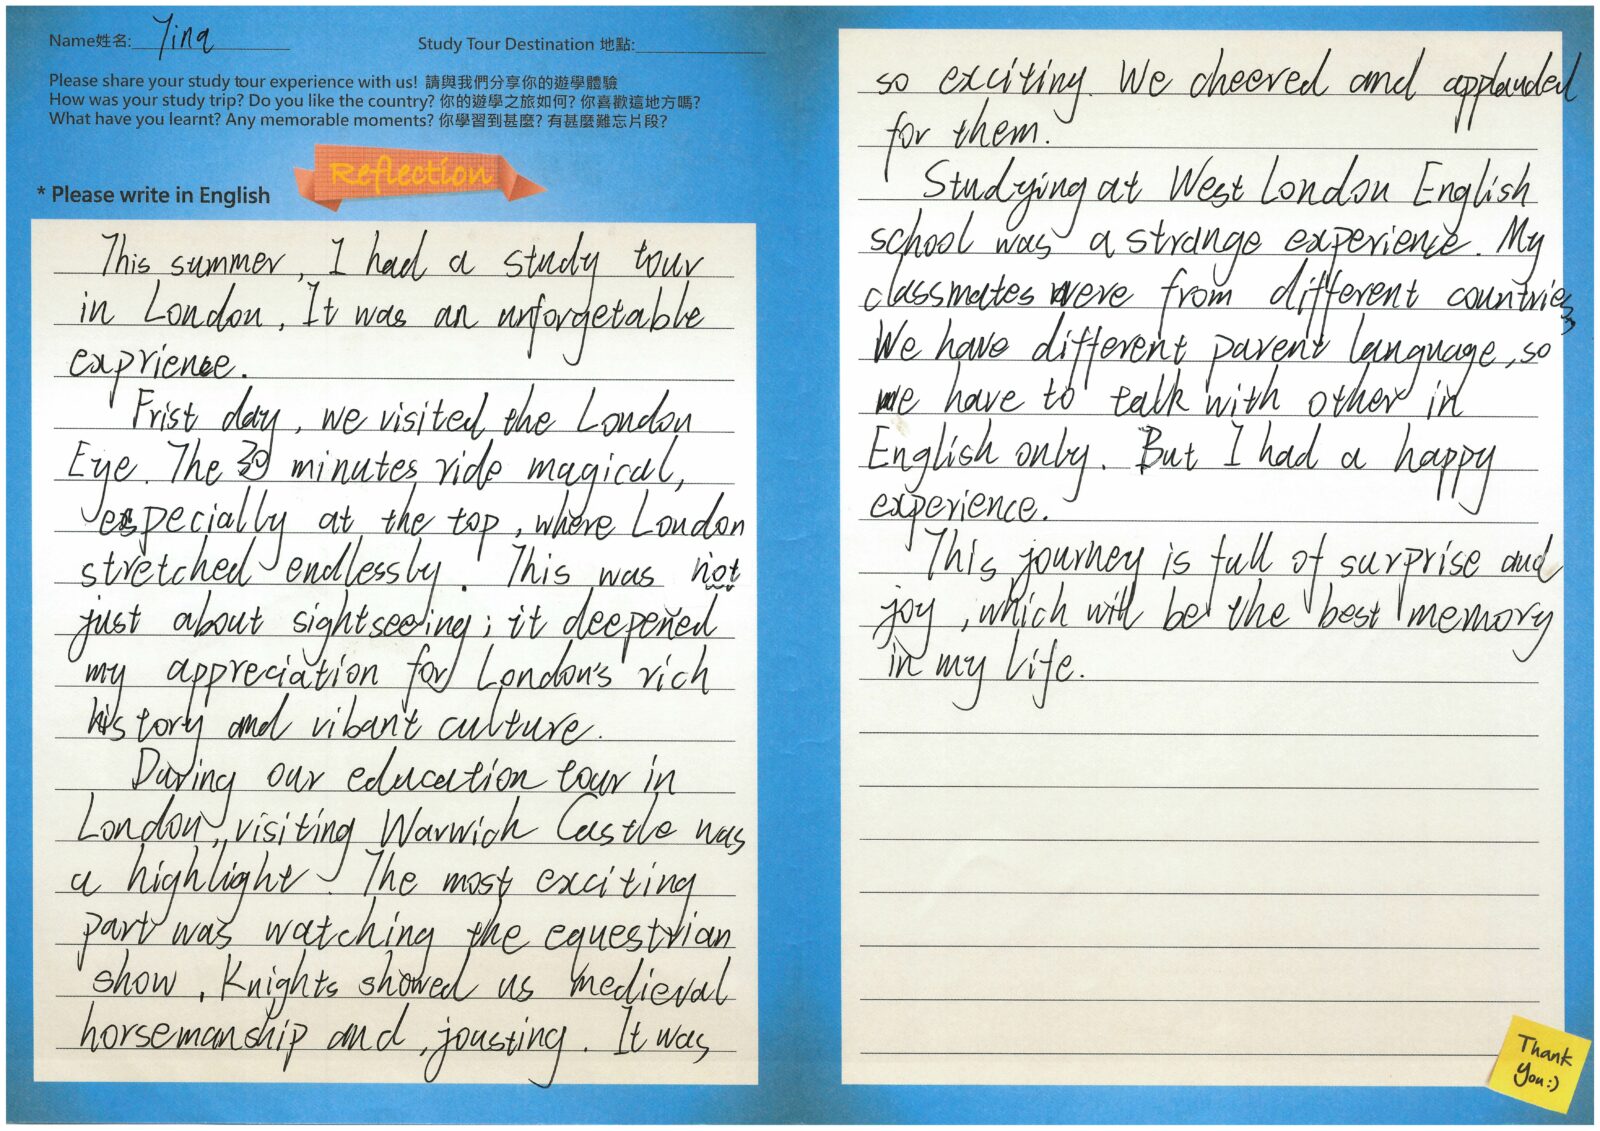 Name姓名: Tina
Study Tour Destination 地點:
Please share your study tour experience with us! 請與我們分享你的遊學體驗
How was your study trip? Do you like the country? 你的遊學之旅如何? 你喜歡這地方嗎?
What have you learnt? Any memorable moments? 你學習到甚麼? 有甚麼難忘片段?
Reflection
* Please write in English
This summer, I had a study tour
in London, It was an unforgetable
exprience.
Frist day, we visited the London
Eye. The 30 minutes ride magical,
especially at the top, where London
stretched endlessly. This was not
just about sightseeing; it deepened
my appreciation for London's rich
history and vibant culture.
During our education tour in
London, visiting Warwick Castle was
a highlight. The most exciting
part was watching the equestrian
show, Knights showed us medieval
horsemanship and, jousting. It was
so exciting. We cheered and applauded
for them.
Studying at West London English
school was a strange experience. My
classmates were from different countries,
We have different parent language, so
we have to talk with other in
English only. But I had a happy
experience.
This journey is full of surprise and
joy, which will be the best memory
in my life.
Thank
You:)